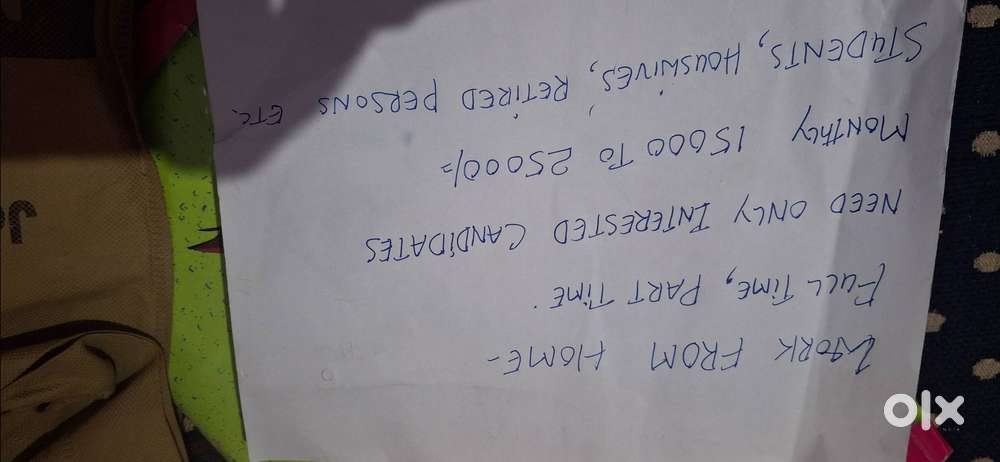 WORK FROM HOME-
FULL TIME, PART TIME.
NEED ONLY INTERESTED CANDIDATES
MONTHLY 15000 TO 25000/=
STUDENTS, HOUSWIVES, RETIRED PERSONS ETC.
olx
INDIA